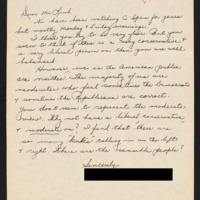 Dear Mr Lamb
We have been watching C Span for years
but mostly Monday + Friday mornings.
I think you try to be very fair. But you
seem to think if there is a very conservative &
a very liberal person on then you are well
balanced.
However, most of the American public
are neither. The majority of us are
moderates who feel sometimes the Democrats
& sometimes the Republicans are correct.
You don't seem to represent the moderate
view. Why not have a liberal, conservative,
& moderate on? I find that there are
so many "kooks" calling in on the left
& right. Where are the sensible people?
Sincerely